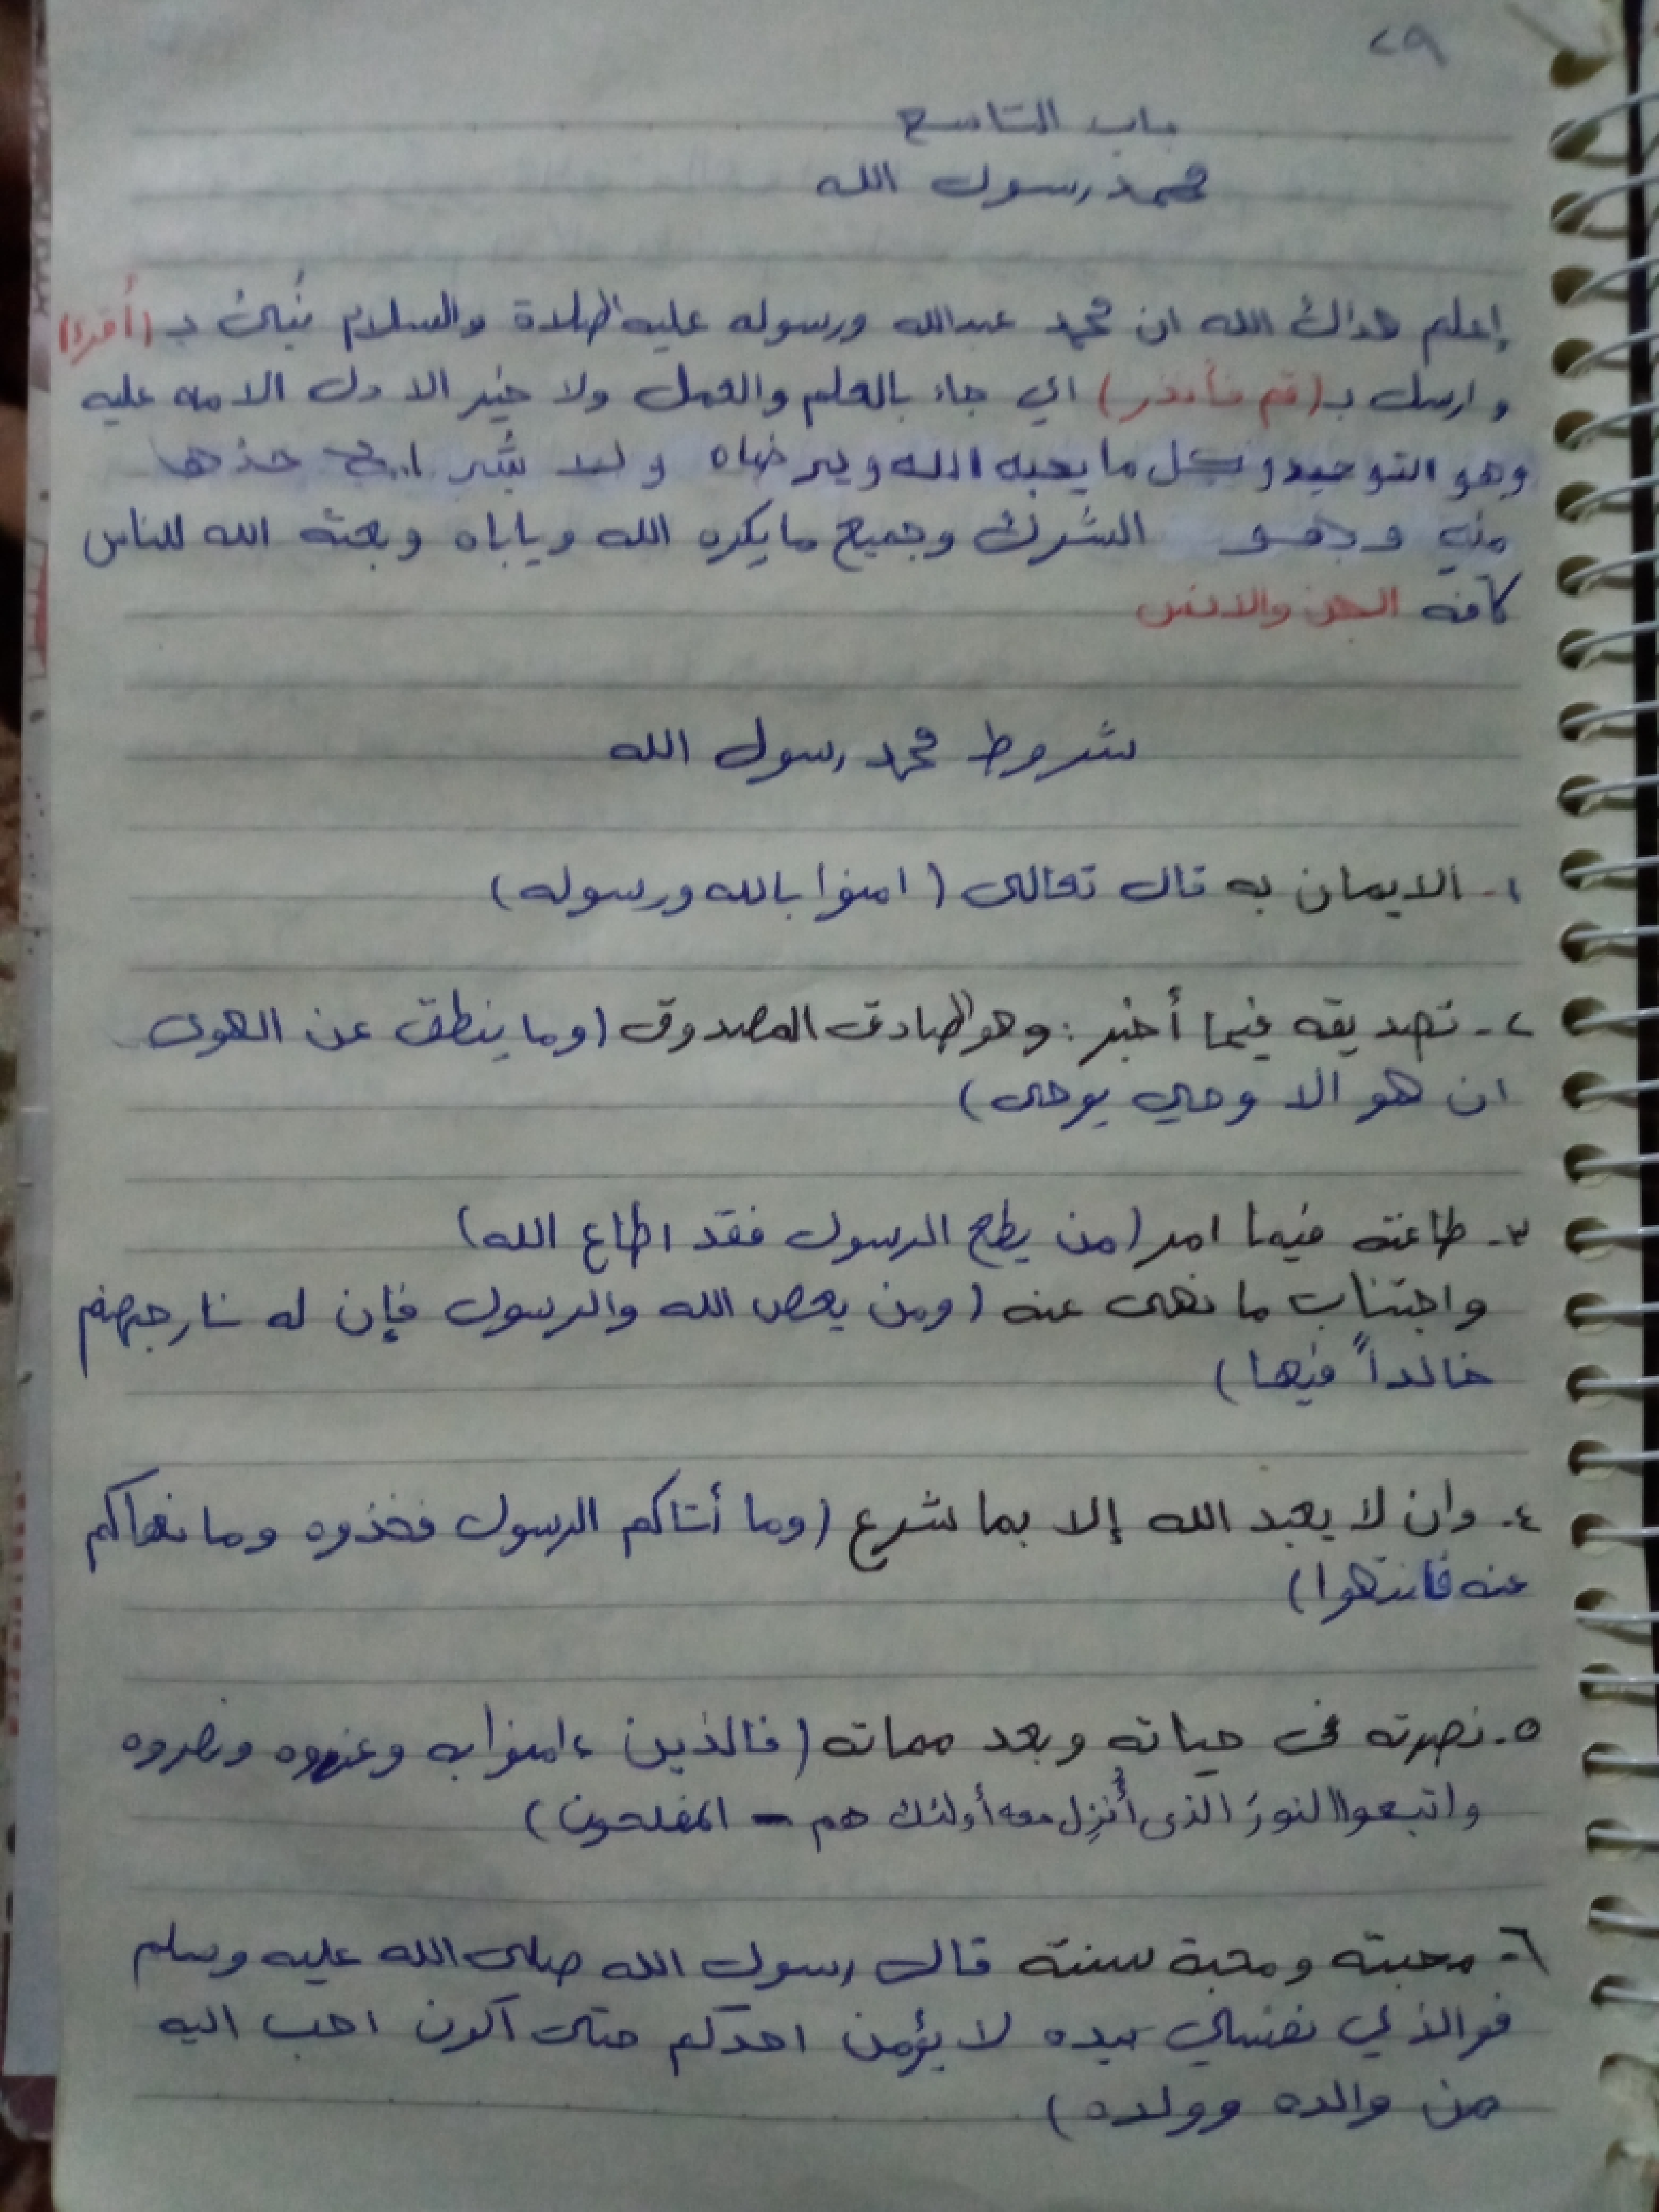 ٢٩
باب التاسع
محمد رسول الله
إعلم هداك الله ان محمد عبدالله ورسوله عليه الصلاة والسلام نُبئ بـ (أقرء)
وارسل بـ (قم فأنذر) اي جاء بالعلم والعمل ولا خير الا دل الامه عليه
وهو التوحيد وكل ما يحبه الله ويرضاه ولا شر حذرها
منه وهو الشرك وجميع ما يكره الله وياباه وبعثه الله للناس
كافه الجن والانس
شروط محمد رسول الله
١- الايمان به قال تعالى (امنوا بالله ورسوله)
٢- تصديقه فيما أخبر: وهو الصادق المصدوق (وما ينطق عن الهوى
ان هو الا وحي يوحى)
٣- طاعته فيما امر (من يطع الرسول فقد اطاع الله)
واجتناب ما نهى عنه (ومن يعص الله والرسول فإن له نار جهنم
خالداً فيها)
٤- وان لا يعبد الله إلا بما شرع (وما أتاكم الرسول فخذوه وما نهاكم
عنه فانتهوا)
٥- نصرته في حياته وبعد مماته (فالذين ءامنوا به وعزروه ونصروه
واتبعوا النورَ الذى أُنزِل معه أولئك هم - المفلحون)
٦- محبته ومحبة سنته قال رسول الله صلى الله عليه وسلم
فوالذي نفسي بيده لا يؤمن احدكم حتى اكون احب اليه
من والده وولده)